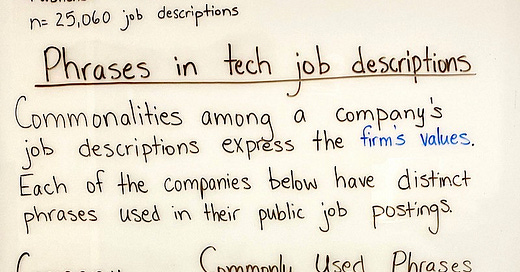 n= 25,060 job descriptions
Phrases in tech job descriptions
Commonalities among a company's
job descriptions express the firm's values.
Each of the companies below have distinct
phrases used in their public job postings.
Commonly Used Phrases